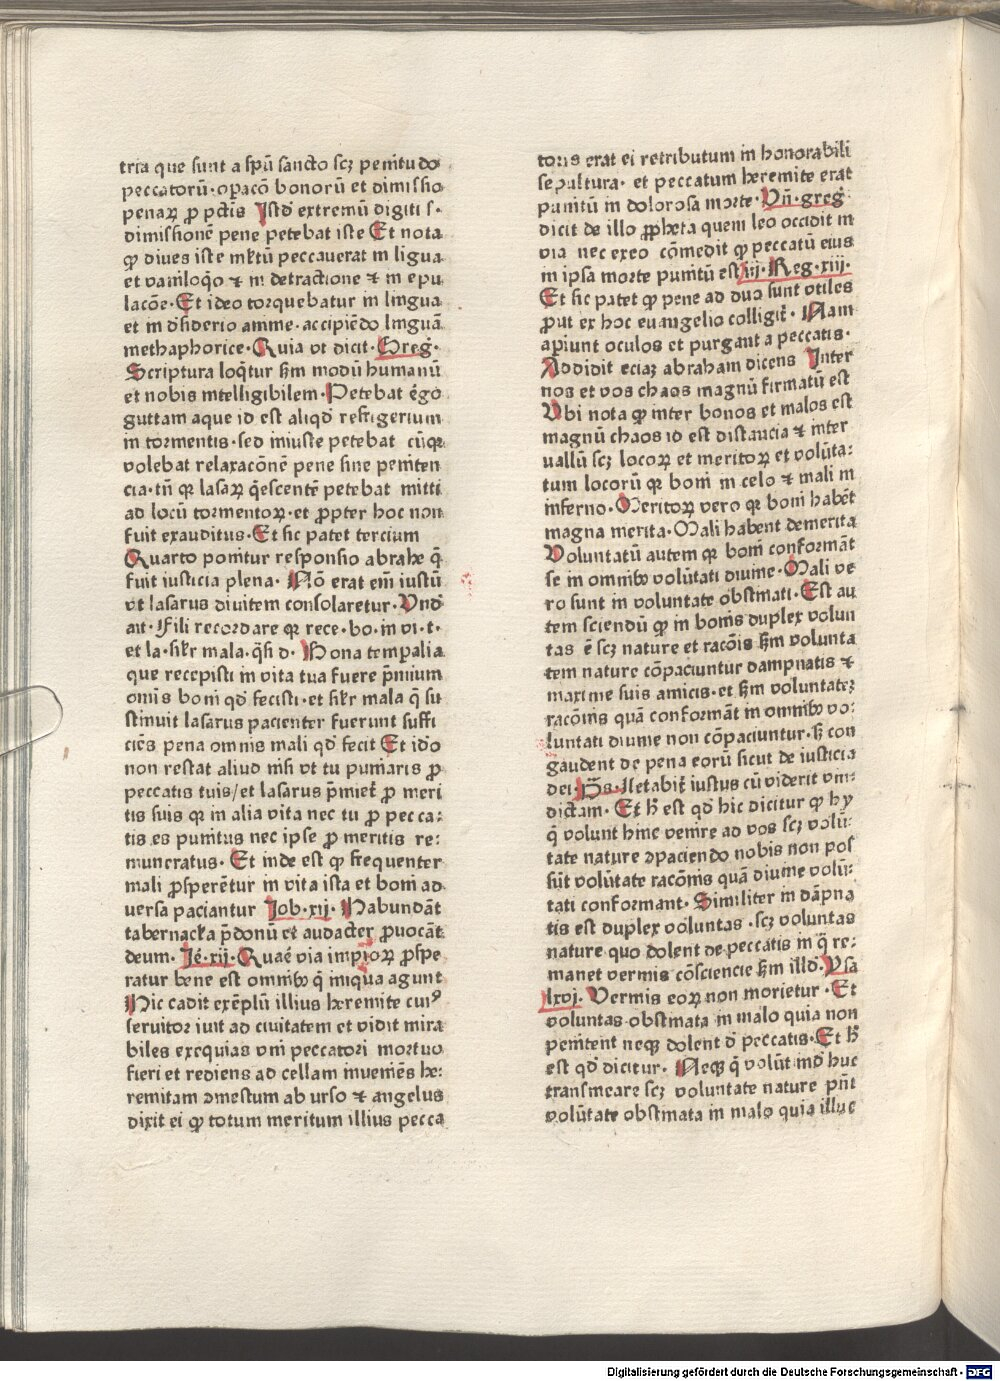 tria que sunt a spū sancto scꝫ penitudo
peccatorū·opacō bonorū et dimissio
penaꝝ ꝓ pctis Istd̄ extremū digiti s·
dimissionē pene petebat iste Et nota
ꝙ diues iste ml̄tū peccauerat in ligua
et vaniloq̄o ⁊ in detractione ⁊ in epu
lacōe·Et ideo torquebatur in lingua
et in d̄siderio anime·accipiēdo linguā
methaphorice·Quia vt dicit·Greg·
Scriptura loq̄tur ẜm modū humanū
et nobis intelligibilem·Petebat ergo
guttam aque id est aliqd̄ refrigerium
in tormentis·sed iniuste petebat cūqꝫ
volebat relaxacōnē pene sine peniten
cia·tn̄ qꝛ lasaꝝ q̄escentē petebat mitti
ad locū tormentoꝝ·et ꝓpter hoc non
fuit exauditus·Et sic patet tercium
Quarto ponitur responsio abrahe q̄
fuit iusticia plena·Nō erat em̄ iustū
vt lasarus diuitem consolaretur·Vnd̄
ait·Fili recordare qꝛ rece·bo·in vi·t·
et la·sil̄r mala·q̄si d·Bona temꝑalia
que recepisti in vita tua fuere p̄mium
om̄is boni qd̄ fecisti·et sil̄r mala q̄ su
stinuit lasarus pacienter fuerunt suffi
ciēs pena omnis mali qd̄ fecit Et id̄o
non restat aliud nisi vt tu puniaris ꝓ
peccatis tuis/et lasarus p̄miet᷑ ꝓ meri
tis suis qꝛ in alia vita nec tu ꝓ pecca⸗
tis es punitus nec ipse ꝓ meritis re⸗
muneratus·Et inde est ꝙ frequenter
mali ꝓsperētur in vita ista et boni ad
uersa paciantur Job·xij·Habundāt
tabernacła p̄donū et audacter ꝓuocāt
deum·Je᷑·xij·Quare via impioꝝ ꝓspe
ratur bene est omnibꝫ q̄ iniqua agunt
Hic cadit exēplū illius heremite cuiꝰ
seruitor iuit ad ciuitatem et vidit mira
biles exequias vni peccatori mortuo
fieri et rediens ad cellam inueniēs he⸗
remitam ꝯmestum ab urso ⁊ angelus
dixit ei ꝙ totum meritum illius pecca
toris erat ei retributum in honorabili
sepultura·et peccatum heremite erat
punitū in dolorosa morte·Vn̄·greg
dicit de illo ꝓpheta quem leo occidit in
via nec exeo cōmedit ꝙ peccatū eius
in ipsa morte punitū est iij·Reg·xiij·
Et sic patet ꝙ pene ad duo sunt vtiles
ꝓut ex hoc euangelio colligit᷑·Nam
apiunt oculos et purgant a peccatis·
Addidit eciaꝫ abraham dicens Inter
nos et vos chaos magnū firmatū est
Vbi nota ꝙ inter bonos et malos est
magnū chaos id est distancia ⁊ inter
uallū scꝫ locoꝝ et meritoꝝ et volūta⸗
tum locorū qꝛ boni in celo ⁊ mali in
inferno·Meritoꝝ vero qꝛ boni habēt
magna merita·Mali habent demerita
Voluntatū autem qꝛ boni conformāt
se in omnibꝫ volūtati diuine·Mali ve
ro sunt in voluntate obstinati·Est au
tem sciendū ꝙ in bonis duplex volun
tas ē scꝫ nature et racōis ẜm volunta
tem nature cōpaciuntur dampnatis ⁊
maxime suis amicis·et ẜm voluntateꝫ
racōnis quā conformāt in omnibꝫ vo⸗
luntati diuine non cōpaciuntur·ꝫ con
gaudent de pena eorū sicut de iusticia
dei·Ps̄·Letabit᷑ iustus cū viderit vin⸗
dictam·Et h̄ est qd̄ hic dicitur ꝙ hy
q̄ volunt hinc venire ad vos scꝫ volū⸗
tate nature ꝯpaciendo nobis non pos
sūt volūtate racōnis quā diuine volū⸗
tati conformant·Similiter in dāpna
tis est duplex voluntas·scꝫ voluntas
nature quo dolent de peccatis in q̄ re⸗
manet vermis cōsciencie ẜm illd̄·Ysa
lxvi·Vermis eoꝝ non morietur·Et
voluntas obstinata in malo quia non
penitent neqꝫ dolent d̄ peccatis·Et h̄
est qd̄ dicitur·Neqꝫ q̄ volūt ind̄ huc
transmeare scꝫ voluntate nature pn̄t
volūtate obstinata in malo quia illuc
Digitalisierung gefördert durch die Deutsche Forschungsgemeinschaft · DFG